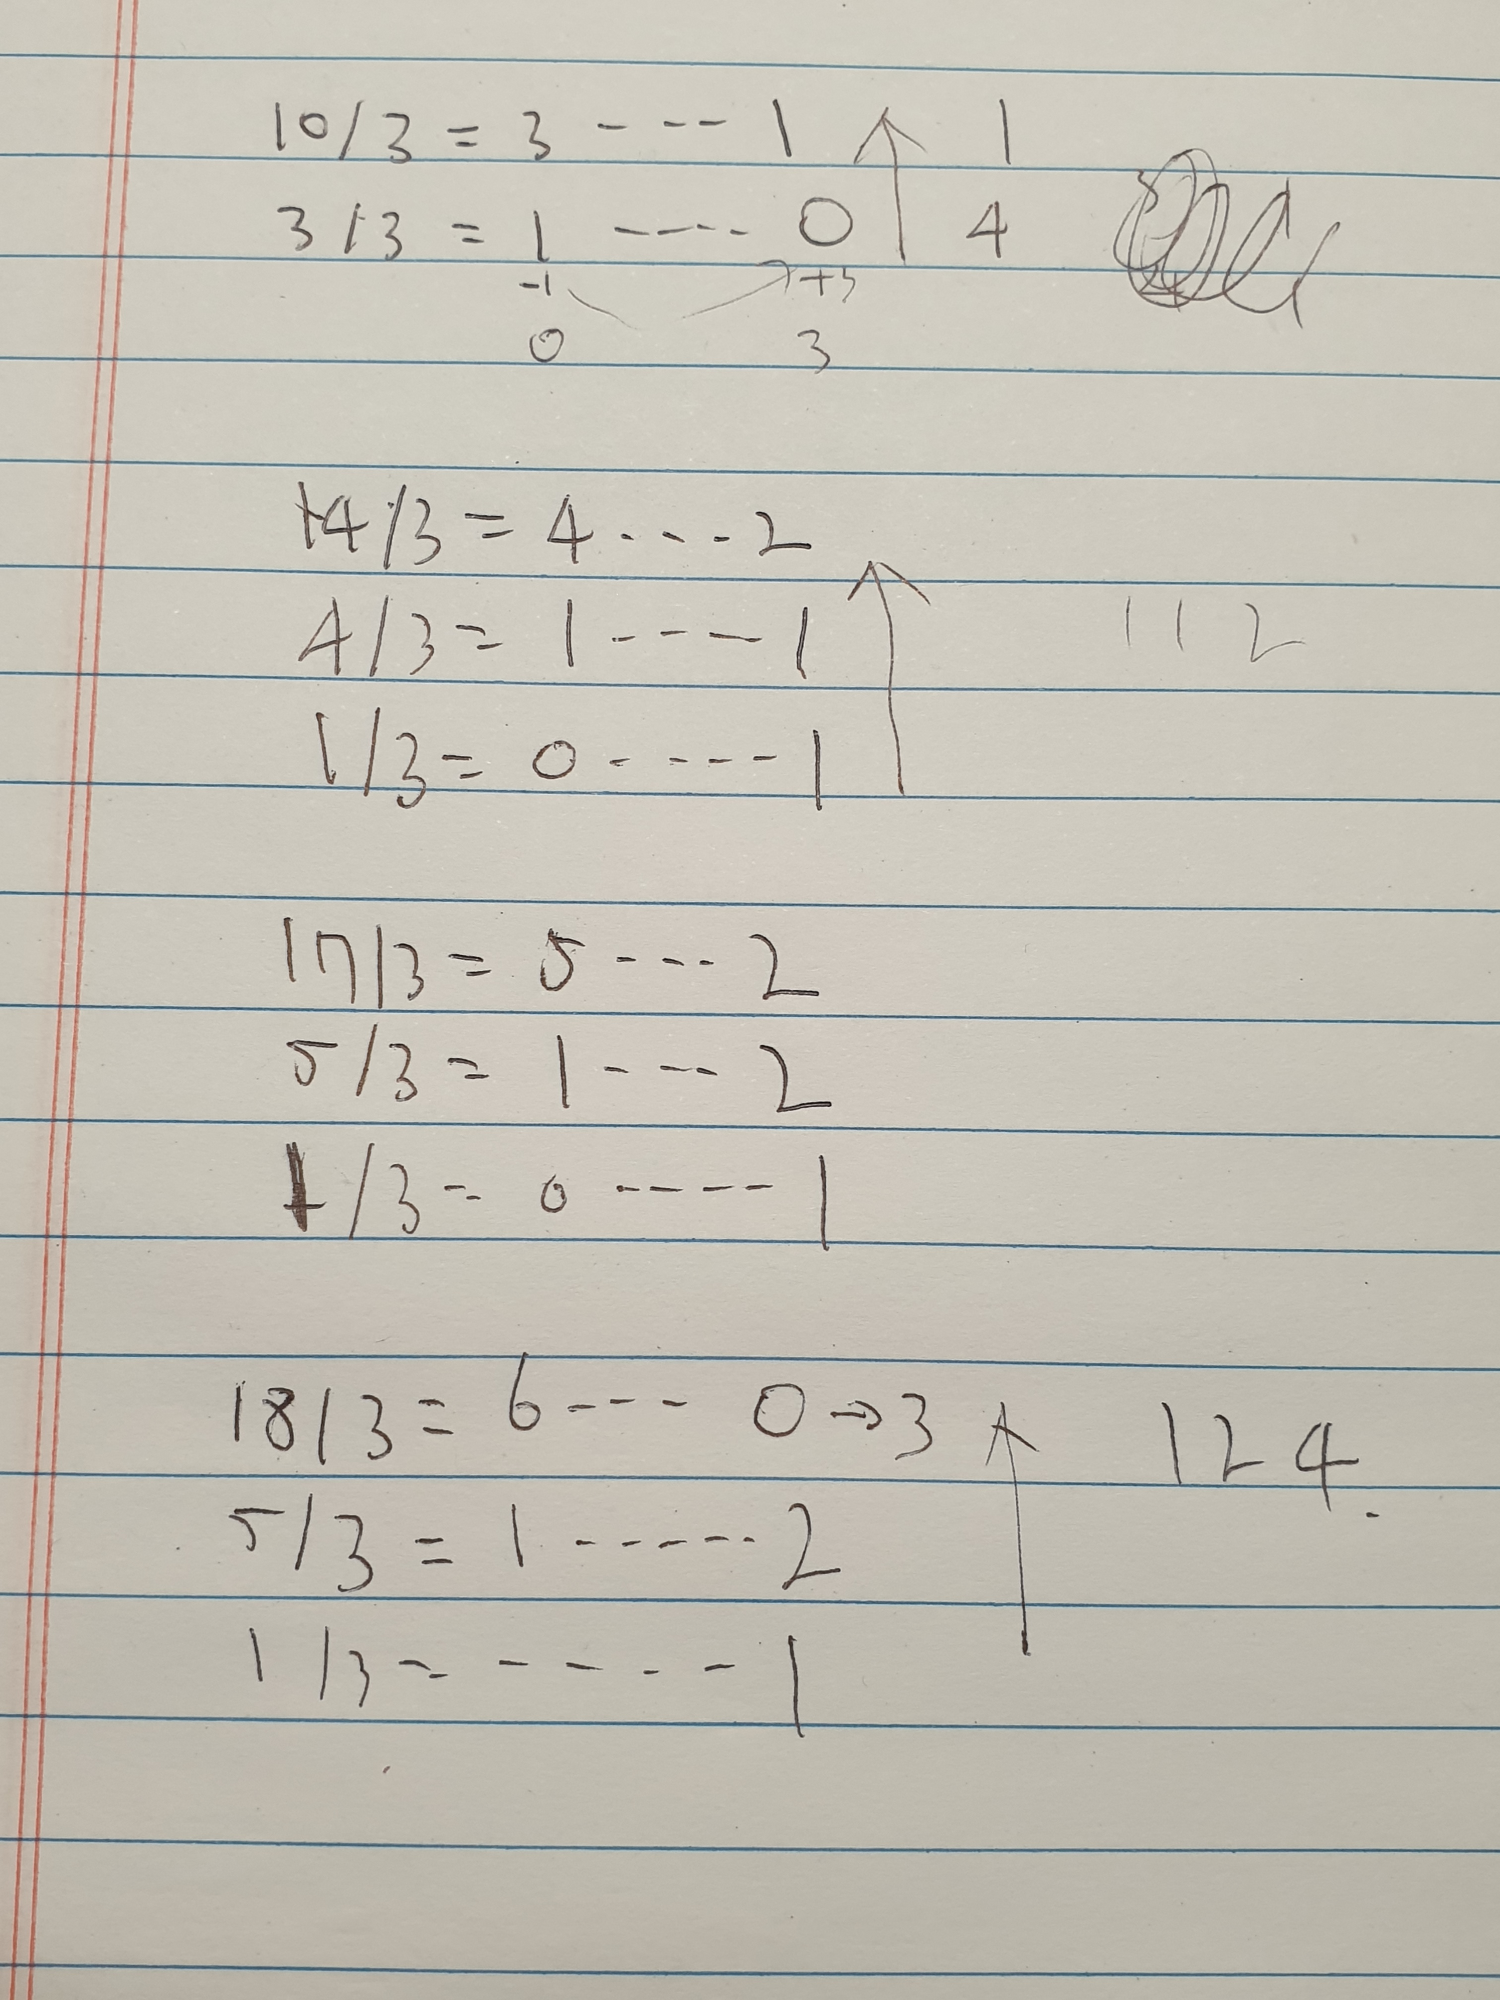 10/3 = 3 - - - - 1 1
3/3 = 1 - - - - - 0 4
-1 +3
0 3
14/3 = 4 - - - - 2
4/3 = 1 - - - - 1 112
1/3 = 0 - - - - - 1
17/3 = 5 - - - - 2
5/3 = 1 - - - - 2
1/3 = 0 - - - - - 1
18/3 = 6 - - - 0 → 3 124.
5/3 = 1 - - - - - - 2
1/3 = - - - - - 1